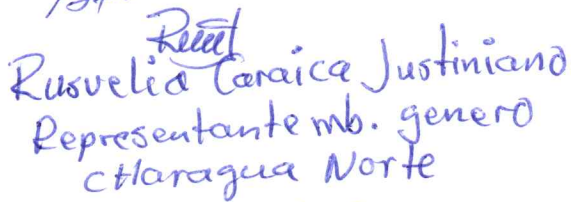 Rusvelia Caraica Justiniano
Representante mb. genero
CHaragua Norte